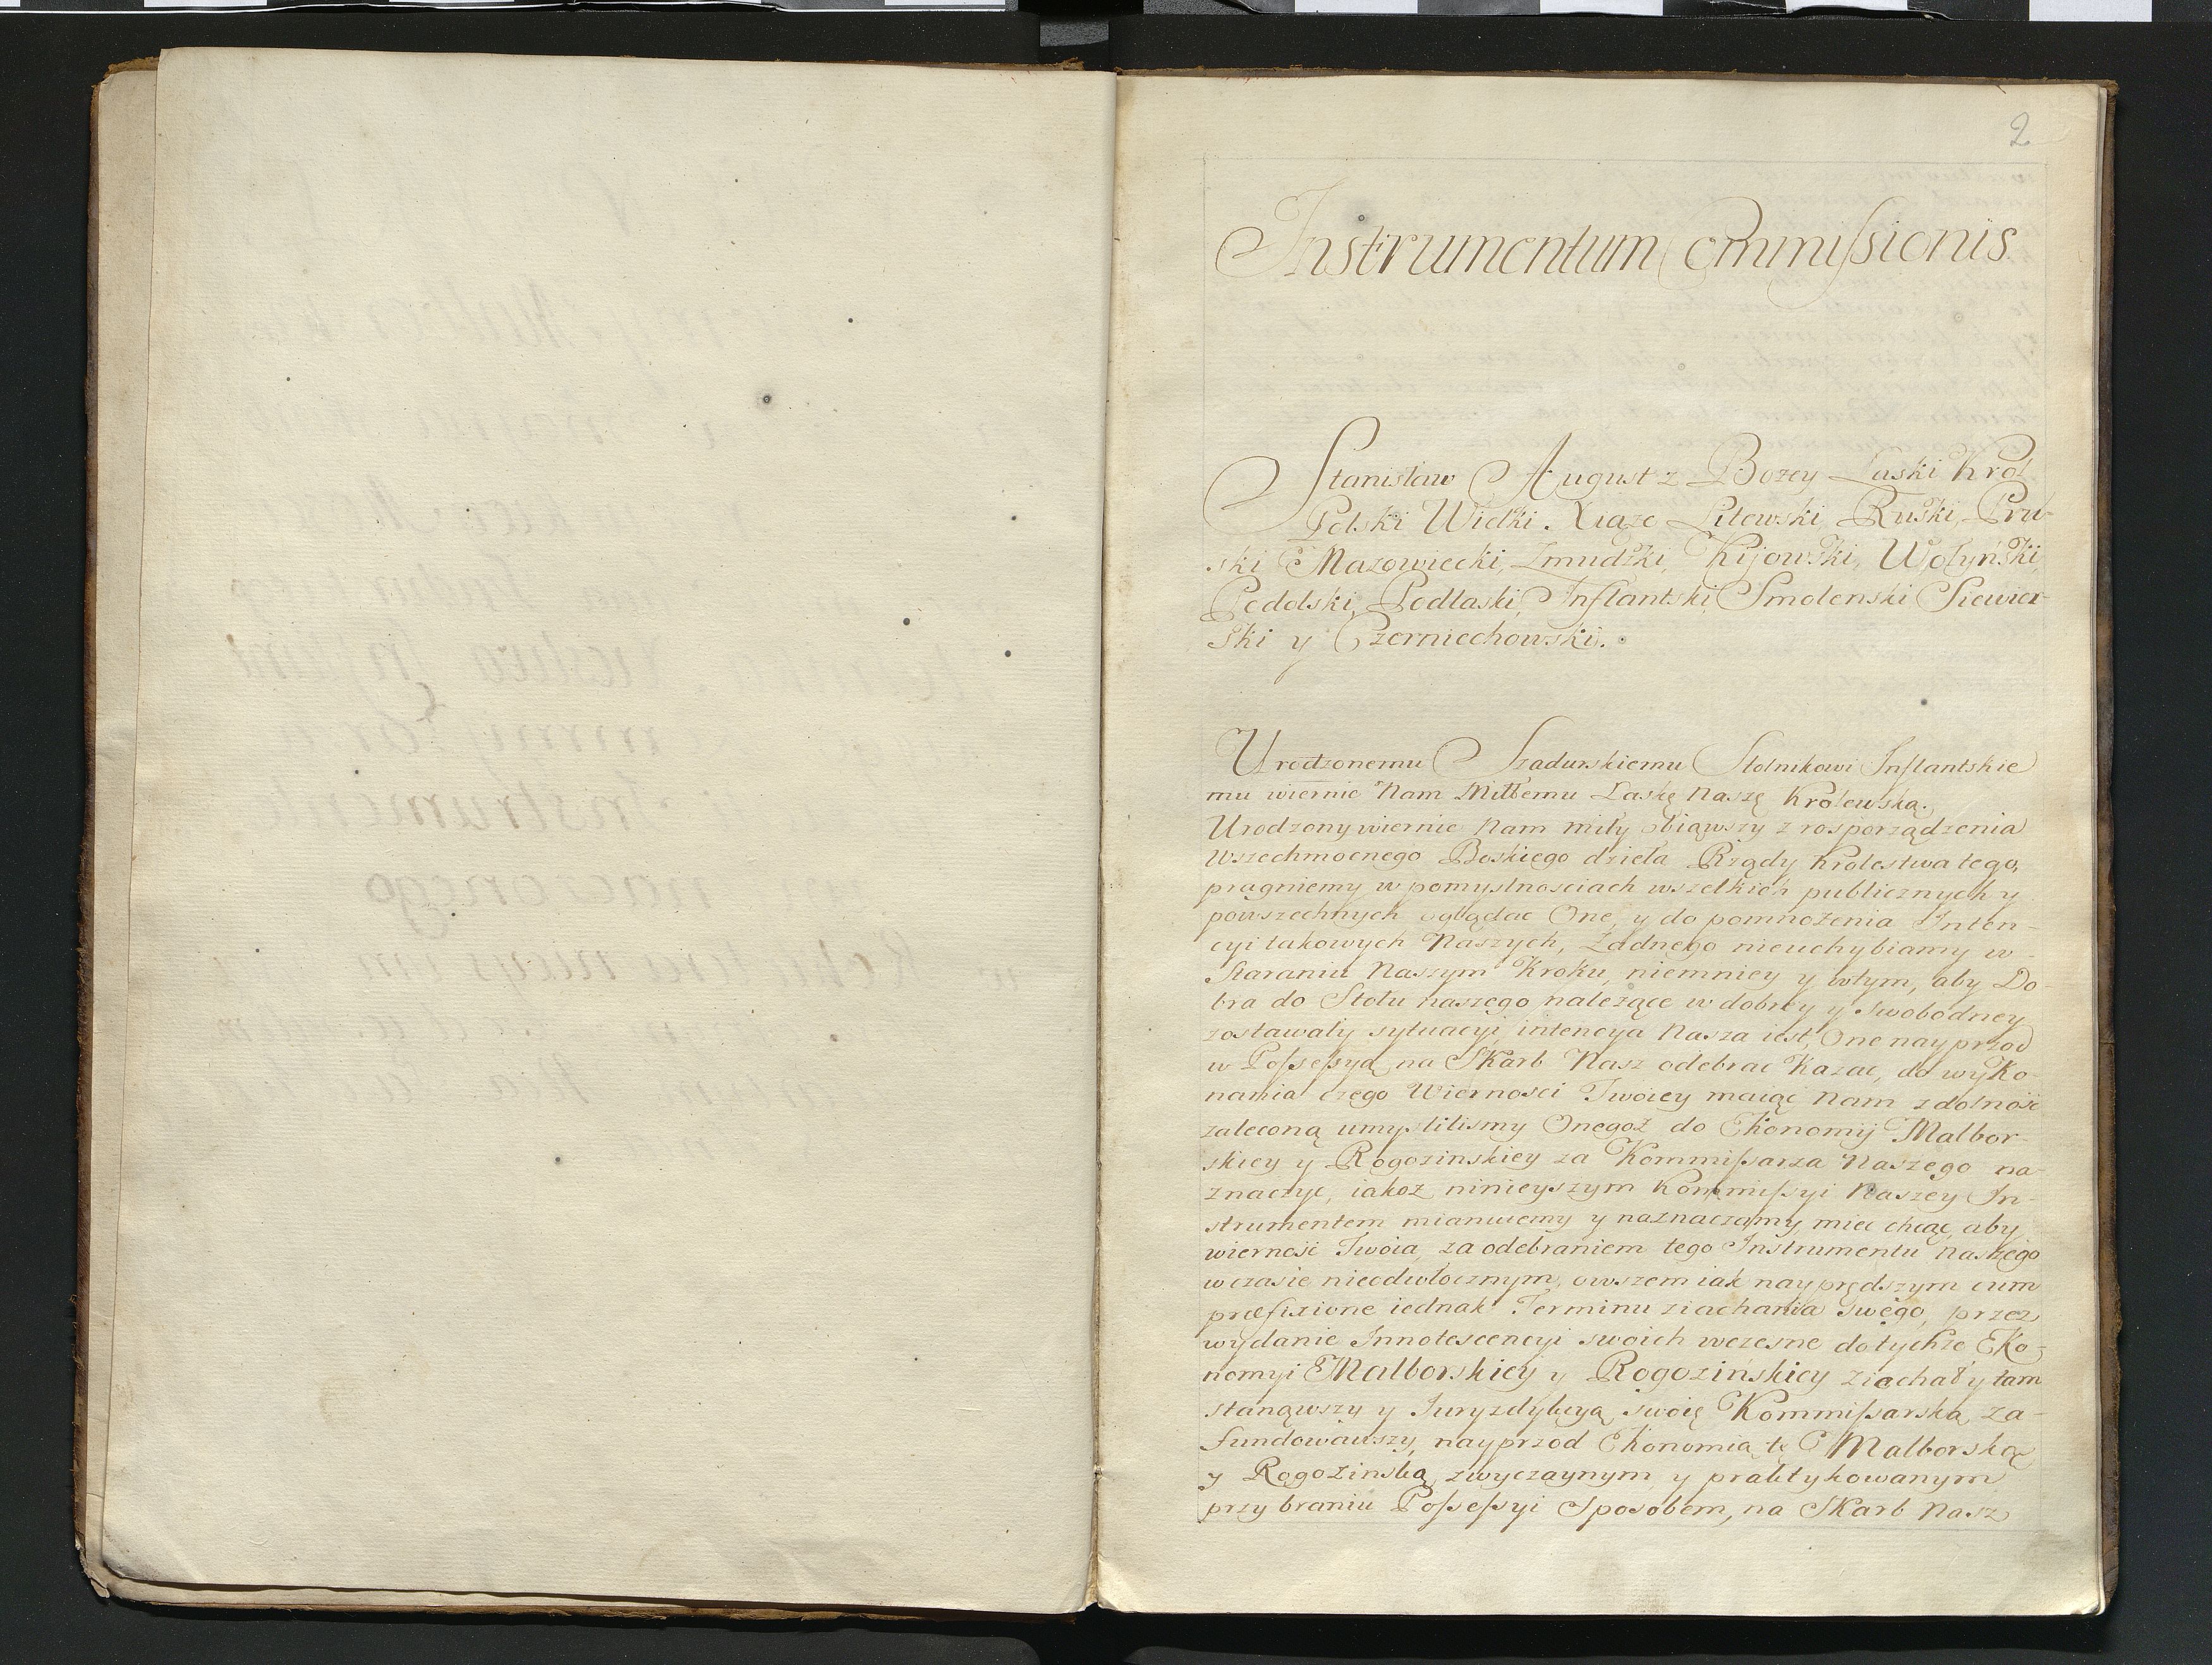 2
Instrumentum Commissionis
Stanisław August z Bozey Łaski Krol
Polski Wielki Xiąze Litewski, Ruski, Pru-
ski Mazowiecki, Zmudzki, Kijowski, Wołyński,
Podolski, Podlaski, Inflantski Smolenski Siewier-
ski y Czerniechowski.
Urodzonemu Szadurskiemu Stolnikowi Inflantskie
mu wiernie Nam Miłłemu Łaskę Naszę Krolewską.
Urodzony wiernie Nam miły obiąwszy z rosporządzenia
Wszechmocnego Boskiego dzieła Rządy Krolestwa tego,
pragniemy w pomyslnosciach wszelkich publicznych y
powszechnych oglądac One, y do pomnożenia Inten-
cyi takowych Naszych, Żadnego nieuchybiamy w
Staraniu Naszym Kroku, niemniey y wtym, aby Do-
bra do Stołu naszego należące w dobrey y swobodney
zostawały sytuacyi, intencya Nasza iest, One nayprzod
w Possessyą na Skarb Nasz odebrac Kazac, do wyko-
nania czego Wiernosci Twoiey maiąc Nam zdolność
zaleconą umyslilismy Onegoż do Ekonomij Malbor-
skiey y Rogozinskiey za Kommissarza Naszego na-
znaczyc, iakoż ninieyszym Kommissyi Naszey In-
strumentem mianuiemy y naznaczamy miec chcąc, aby
wierność Twoia, za odebraniem tego Instrumentu naszego
w czasie nieodwłocznym, owszem iak nayprędszym cum
præfixione iednak Terminu ziachania swego, przez
wydanie Innotescencyi swoich wczesne do tychże Eko-
nomyi Malborskiey y Rogozińskiey ziachał y tam
stanąwszy y Iuryzdykcyą swoię Kommissarską za-
fundowawszy, nayprzod Ekonomią tę Malborską
y Rogozinską zwyczaynym y praktykowanym
przy braniu Possessyi Sposobem, na Skarb Nasz